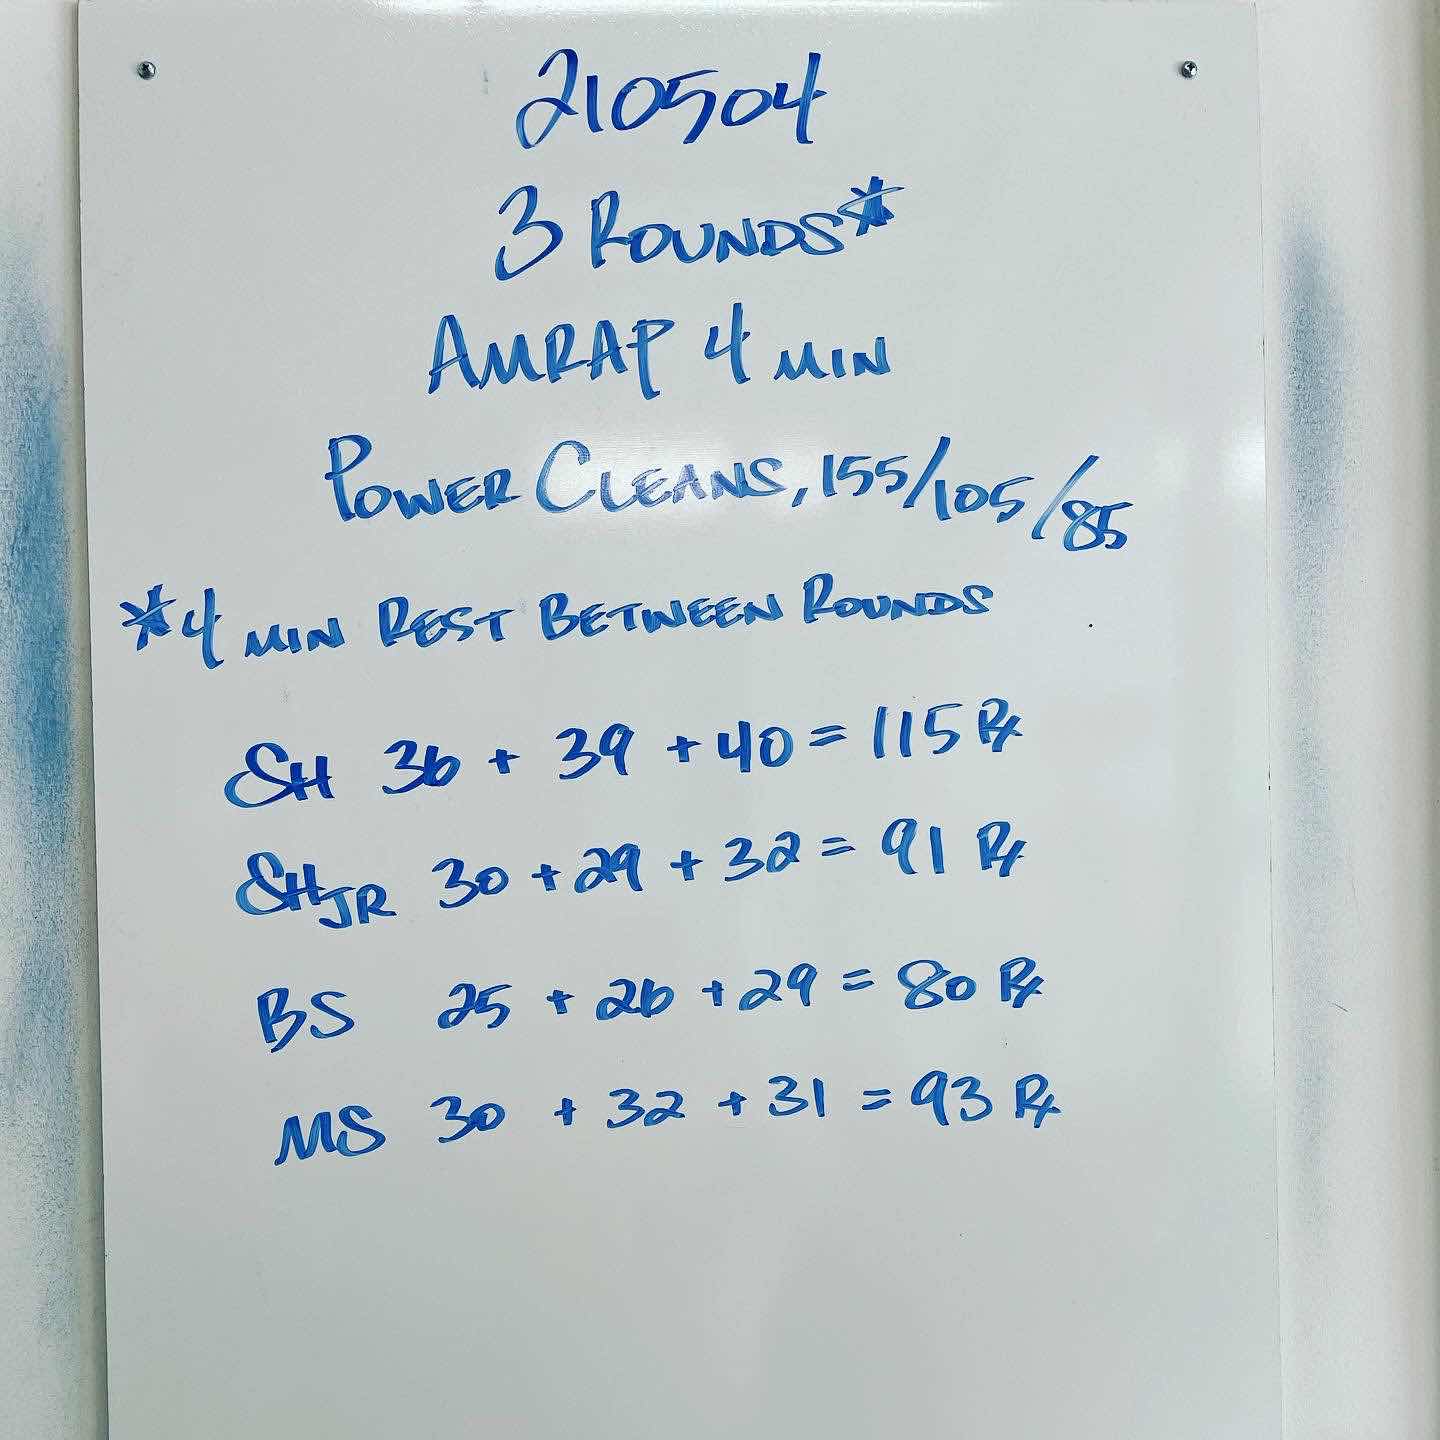 210504
3 ROUNDS*
AMRAP 4 MIN
POWER CLEANS, 155/105/85
*4 MIN REST BETWEEN ROUNDS
SH 36 + 39 + 40 = 115 Rx
SHJR 30 + 29 + 32 = 91 Rx
BS 25 + 26 + 29 = 80 Rx
MS 30 + 32 + 31 = 93 Rx